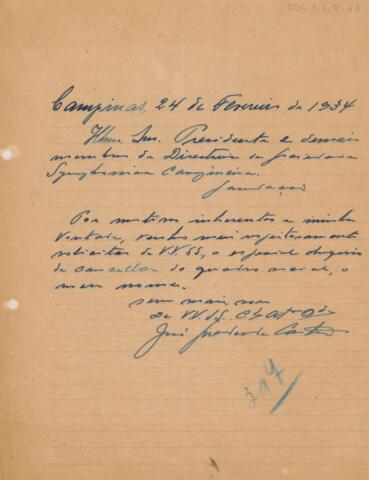 Campinas, 24 de Fevereiro de 1934
Illmo. Snr. Presidente e demais
membros da Directoria da Sociedade
Symphonica Campineira.
Saudações
Por motivos inherentes a minha
vontade, venho mui respeitosamente
solicitar de VV.SS, o especial obsequio
de cancellar do quadro social, o
meu nome.
Sem mais, sou
De VV.SS.
José de Castro
397